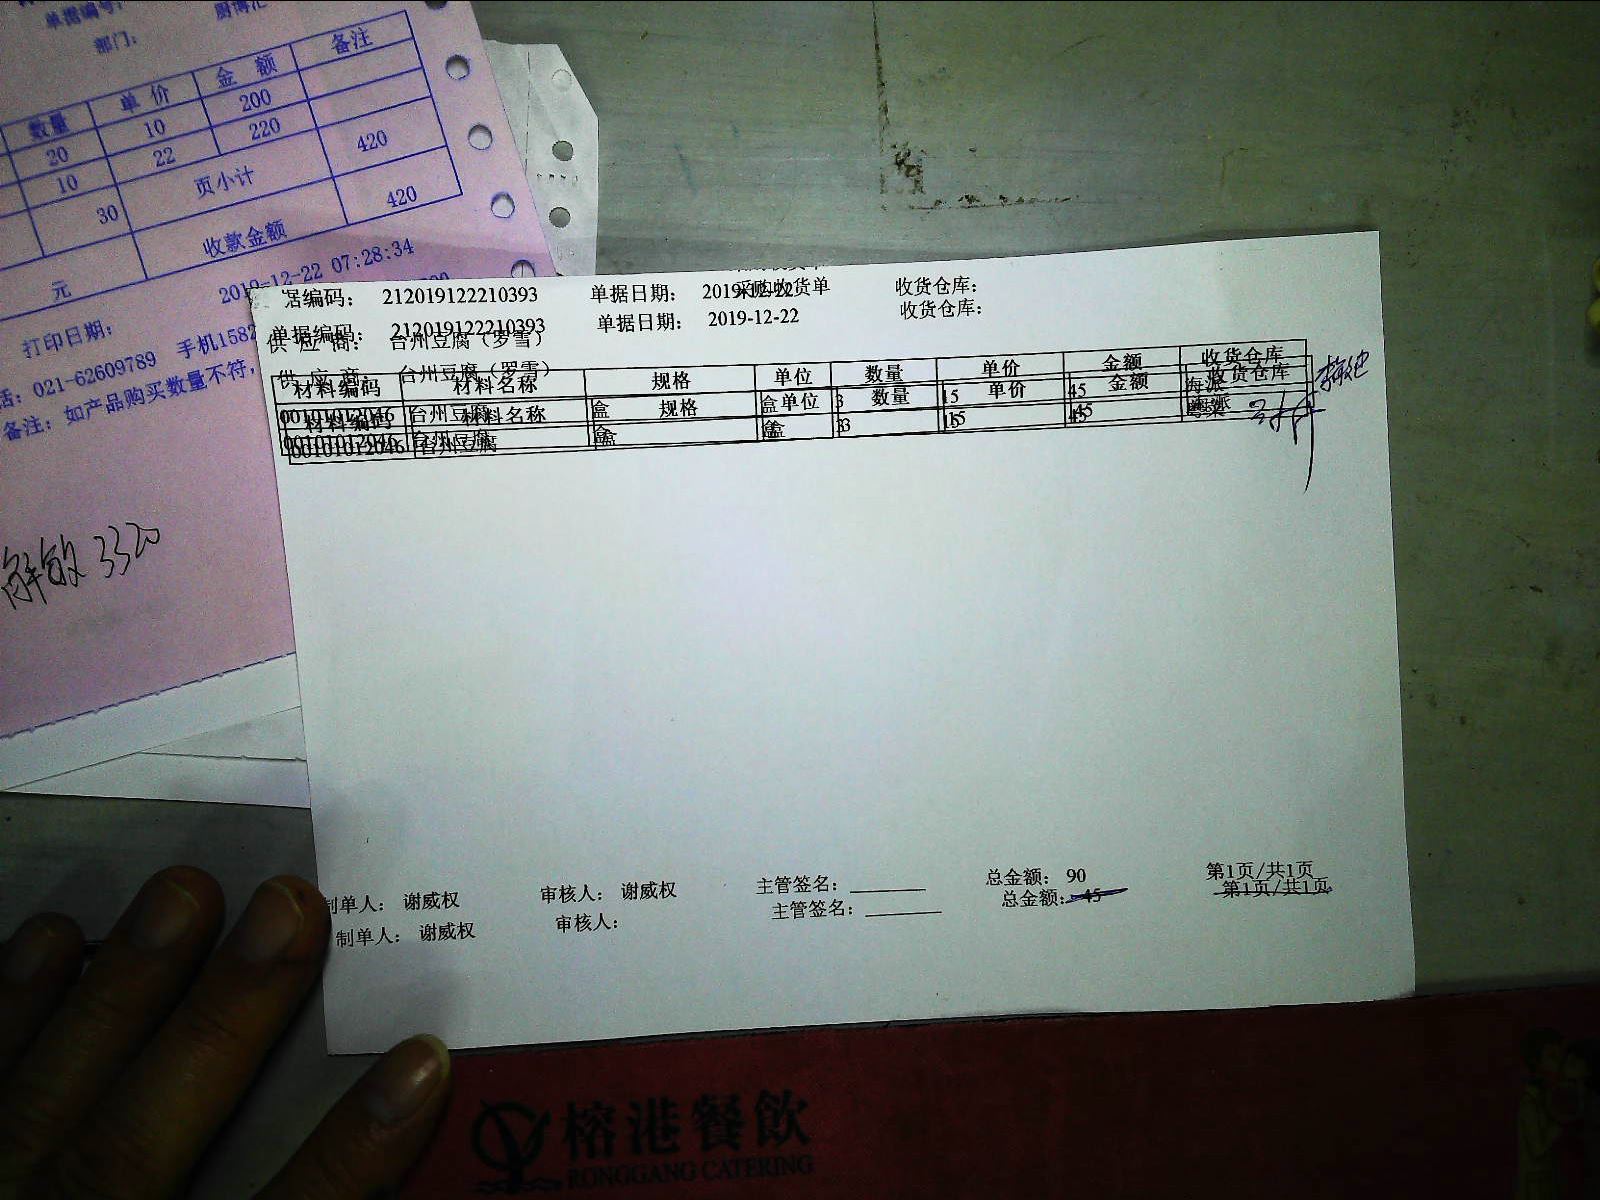 单据编号:
厨博汇
部门:
数量 单价 金额 备注
20 10 200
10 22 220
30 页小计 420
元 收款金额 420
2019-12-22 07:28:34
打印日期:
021-62609789 手机1582
备注: 如产品购买数量不符,
解敏 3320
采购收货单
据编码: 212019122210393 单据日期: 2019-12-22 收货仓库:
单据编码: 212019122210393 单据日期: 2019-12-22 收货仓库:
供应商: 台州豆腐（罗雪）
供应商: 台州豆腐（罗雪）
材料编码 材料名称 规格 单位 数量 单价 金额 收货仓库
00101012046 台州豆腐 盒 盒 3 15 45 海派
材料编码 材料名称 规格 单位 数量 单价 金额 收货仓库
00101012046 台州豆腐 盒 盒 3 15 45
00101012046 台州豆腐 盒 盒 3 15 45
制单人: 谢威权 审核人: 谢威权 主管签名: 总金额: 90 第1页/共1页
制单人: 谢威权 审核人: 主管签名: 总金额: 45 第1页/共1页
榕港餐飲
RONGGANG CATERING